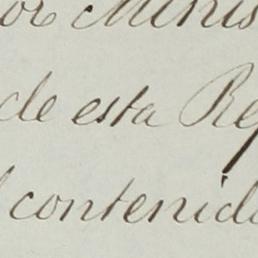 or Minis
de esta Rep
l contenido